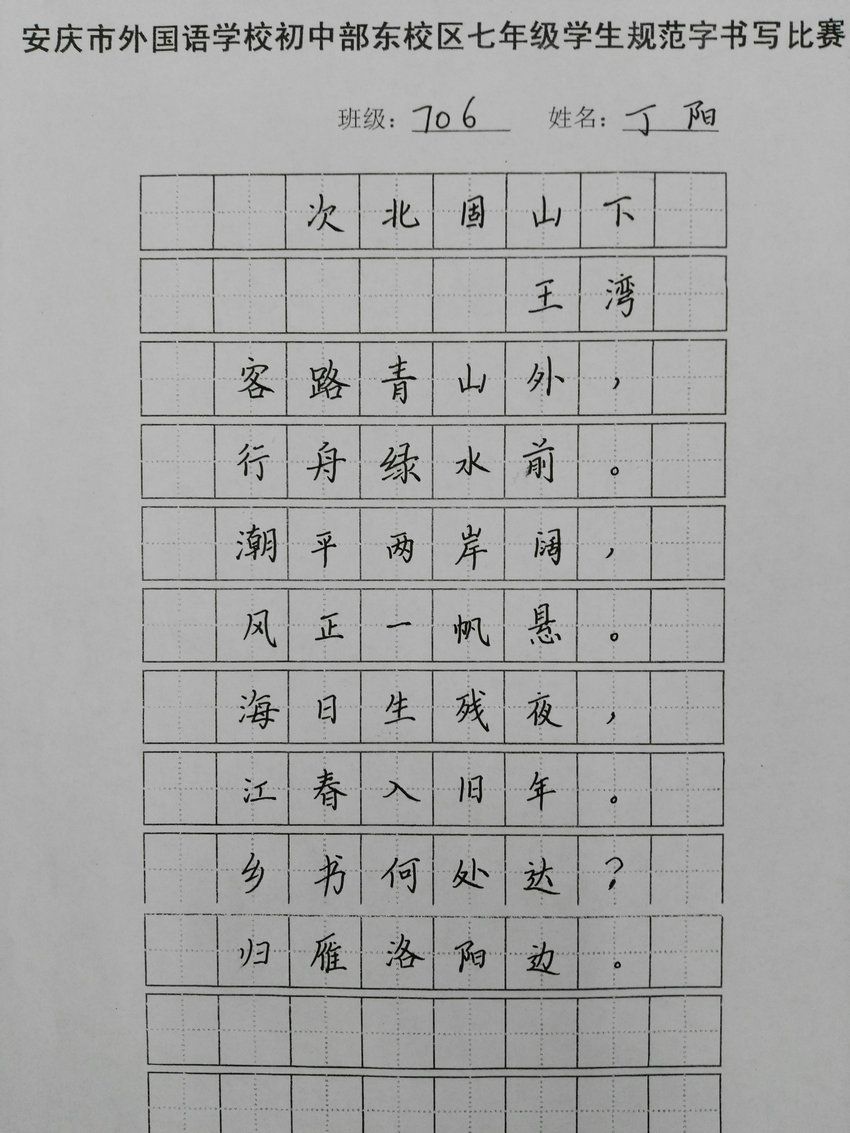 安庆市外国语学校初中部东校区七年级学生规范字书写比赛
班级：706 姓名：丁阳
次北固山下
王湾
客路青山外，
行舟绿水前。
潮平两岸阔，
风正一帆悬。
海日生残夜，
江春入旧年。
乡书何处达？
归雁洛阳边。